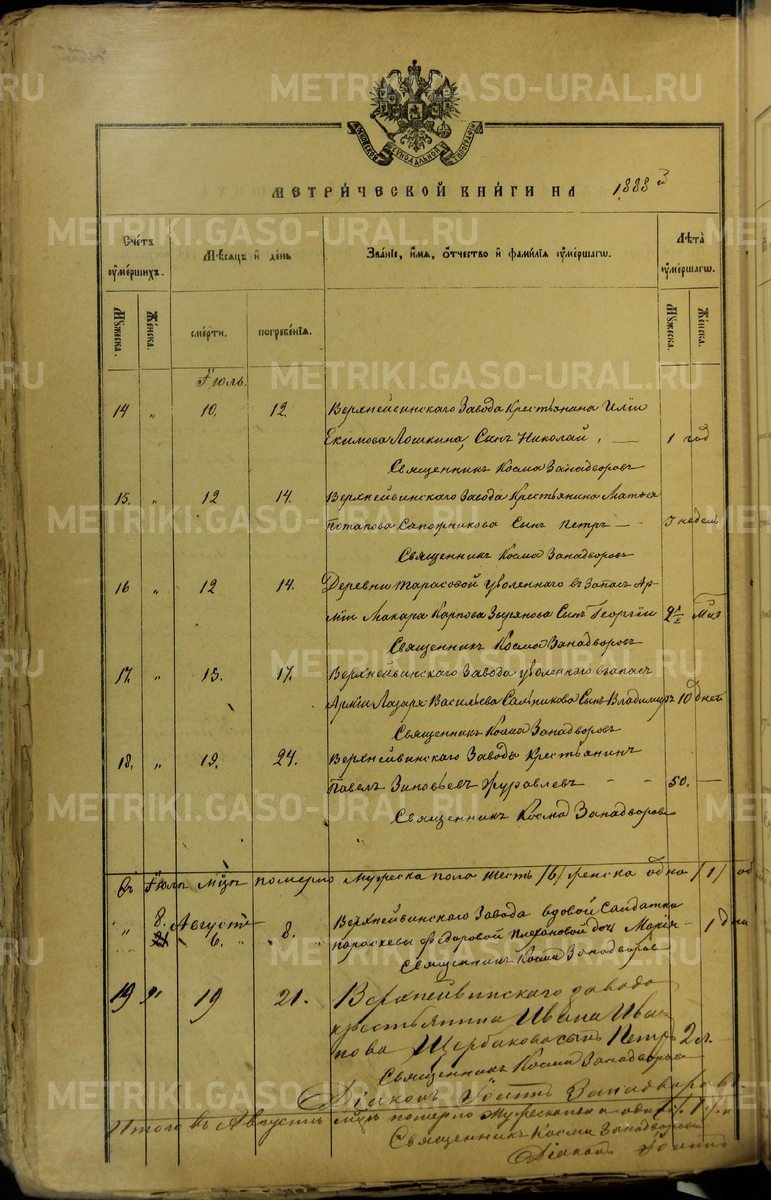 METRIKI.GASO-URAL.RU
МЕТРИ́ЧЕСКОЙ КНИ́ГИ НА 1888
Сче́тъ ᲂумершихъ.
Мѣсяцъ и день
Зва́ніе, и́мя, ѻ́тчество и фами́лія ᲂумершагѡ.
Лѣта̀ ᲂумершагѡ.
Мꙋжеска.
Женска.
сме́рти.
погребе́нія.
Мꙋжеска.
Женска.
Іюль.
14 " 10. 12. Верхнейвинскаго Завода Крестьянина Иліи
Екимова Лошкина, Сынъ Николай, — 1 год
Священникъ Косма Занадворовъ
15. " 12 14. Верхнейвинскаго Завода Крестьянина Матвея
Потапова Сапожникова Сынъ Петръ — 3 недели
Священникъ Косма Занадворовъ
16 " 12 14. Деревни Тарасовой уволеннаго въ Запасъ Ар-
міи Макара Карпова Зырянова Сынъ Георгій
Священникъ Косма Занадворовъ
17. " 15. 17. Верхнейвинскаго Завода уволеннаго въ запасъ
Арміи Лазаря Васильева Сальникова Сынъ Владимиръ 10 дней
Священникъ Косма Занадворовъ
18. " 19. 24. Верхнейвинскаго Завода Крестьянинъ
Павелъ Зиновьевъ Журавлевъ - - 50. —
Священникъ Косма Занадворовъ
Въ Іюлѣ мцѣ померло Мужеска пола шесть /6/ женска одна /1/
" 8. Августъ 6. 8. Верхнейвинскаго Завода вдовой Салдатки
Параскевы Ѳедоровой Плехановой дочь Марія - 1 дня
Священникъ Косма Занадворовъ
19 " 19 21. Верхнейвинскаго завода
крестьянина Ивана Ива-
нова Щербакова сынъ Петръ 2 л.
Священникъ Косма Занадворовъ
Діаконъ Занадворовъ
Итого въ Августѣ мцѣ померло Мужеска пола
Священникъ Косма Занадворовъ
Діаконъ